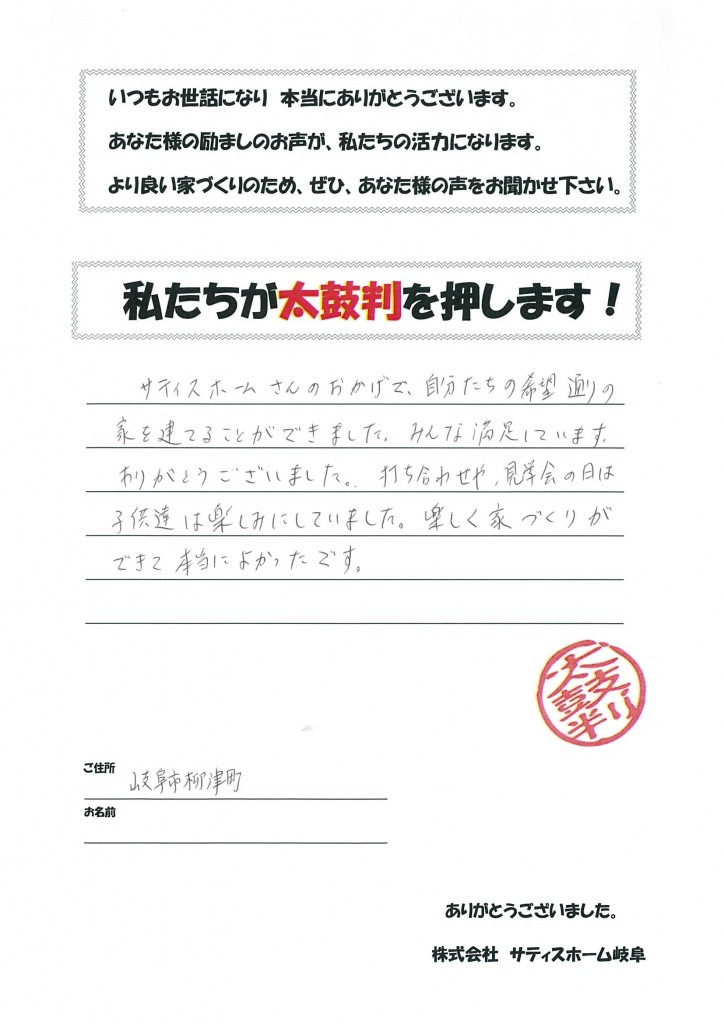 いつもお世話になり 本当にありがとうございます。
あなた様の励ましのお声が、私たちの活力になります。
より良い家づくりのため、ぜひ、あなた様の声をお聞かせ下さい。
私たちが太鼓判を押します！
サティスホームさんのおかげで、自分たちの希望通りの
家を建てることができました。みんな満足しています。
ありがとうございました。打ち合わせや、見学会の日は
子供達は楽しみにしていました。楽しく家づくりが
できて本当によかったです。
太鼓判
ご住所 岐阜市柳津町
お名前
ありがとうございました。
株式会社 サティスホーム岐阜